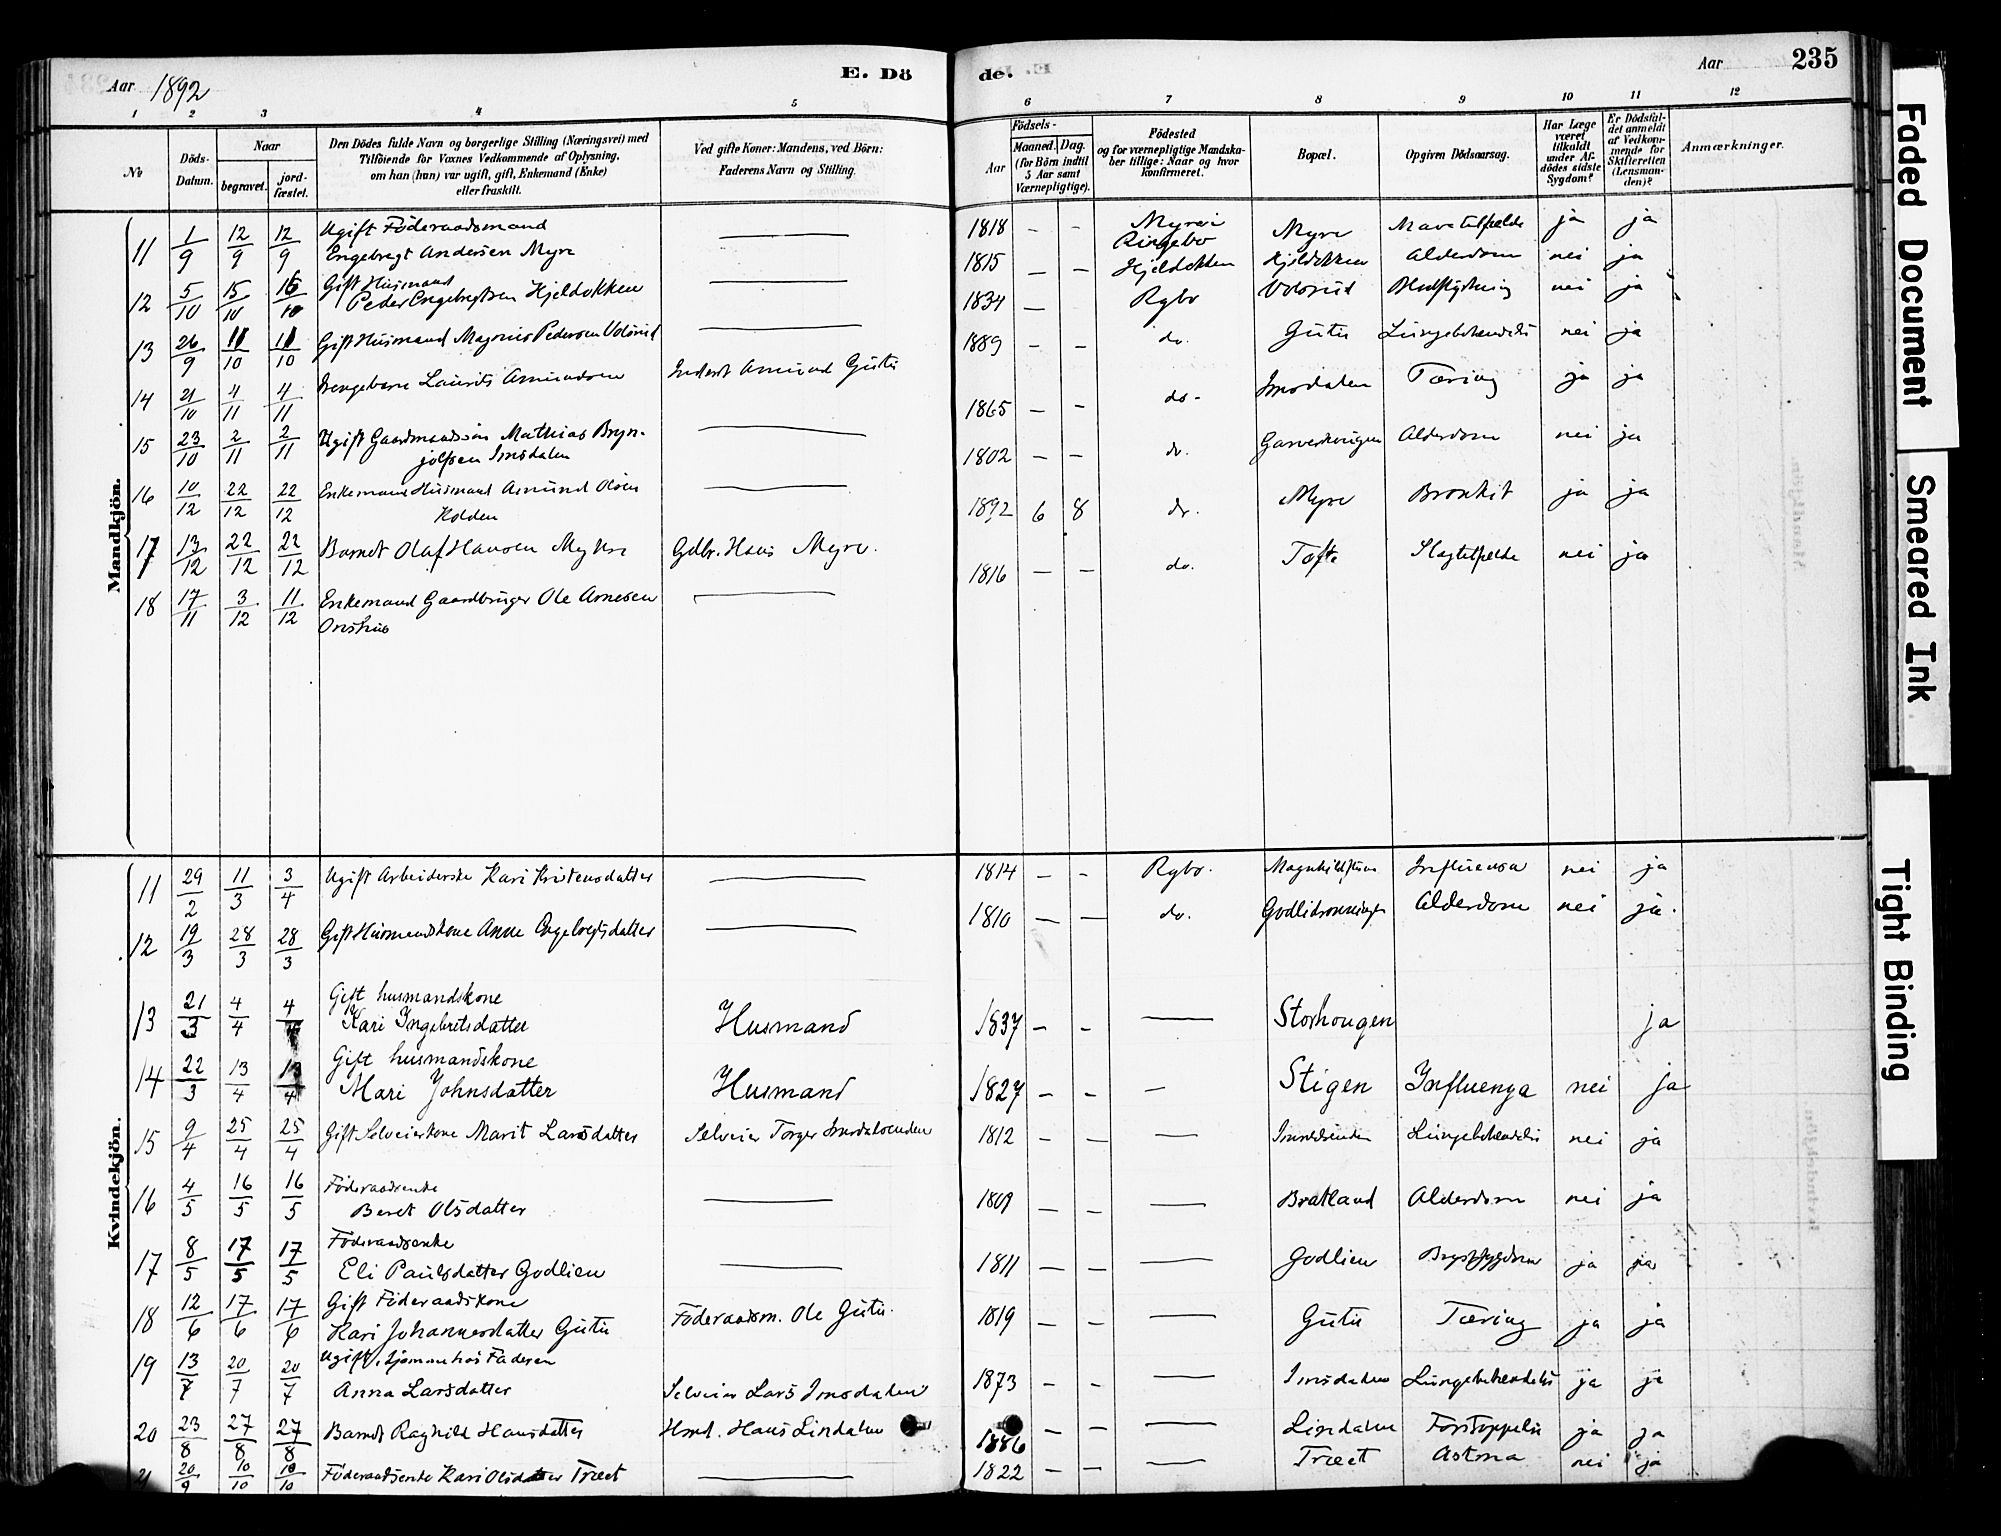 Aar 1892
E. Dö
de.
Aar
235
1 2 3 4 5
6 7 8 9 10 11 12
№
Döds-
Datum.
Naar
begravet.
jord-
fæstet.
Den Dödes fulde Navn og borgerlige Stilling (Næringsvei) med
Tilföiende for Voxnes Vedkommende af Oplysning,
om han (hun) var ugift, gift, Enkemand (Enke)
eller fraskilt.
Ved gifte Koner: Mandens, ved Börn:
Faderens Navn og Stilling.
Födsels-
Aar
Maaned. Dag.
(for Börn indtil
5 Aar samt
Værnepligtige).
Födested
og for værnepligtige Mandska-
ber tillige: Naar og hvor
konfirmeret.
Bopæl.
Opgiven Dödsaarsag.
Har Læge
været
tilkaldt
under Af-
dödes sidste
Sygdom?
Er Dödsfal-
det anmeldt
af Vedkom-
mende for
Skifteretten
(Lensman-
den)?
Anmærkninger.
Mandkjön.
11 1/9 12/9 12/9 Ugift Föderaadsmand
Engebregt Andersen Myre — 1818 - - Myre i
Ringebo Myre Mavetilfælde ja ja
12 5/10 15/10 15/10 Gift Husmand
Peder Engebregtsen Hjeldokken — 1815 — — Hjeldokken Hjeldokken Alderdom nei ja
13 26/9 11/10 11/10 Gift Husmand Magnus Pedersen Volsrud — 1834 — Rgbo Volsrud nei ja
14 21/10 4/11 4/11 Laurits Amundsen Inderst Amund Gutu 1889 - - do. Gutu Lungebetændelse nei ja
15 23/10 2/11 2/11 Ugift Gaardmandssön Mathias Bryn-
jolfsen Imsdalen — 1865 — - do- Imsdalen Tæring ja ja
16 10/12 22/12 22/12 Enkemand Husmand Amund Olsen
Holden — 1802 — - do. Alderdom nei ja
17 13/12 22/12 22/12 Barnet Olaf Hansen Myhre Gdbr. Hans Myre. 1892 6 8 do. Myre Bronkit ja ja
18 17/11 3/12 11/12 Enkemand Gaardbruger Ole Arnesen
— 1816 — — do. Tofte Slagtilfælde nei ja
Kvindekjön.
11 29/2 11/3 3/4 Ugift Arbeiderske Kari Kristensdatter — 1814 — - Rgbo. Influensa nei ja
12 19/3 28/3 28/3 Gift Husmandskone Anne Engebregtsdatter — 1810 — — do. Alderdom nei ja.
13 21/3 4/4 4/4 Gift husmandskone
Kari Ingebretsdatter Husmand 1837 - - — Storhougen ja
14 22/3 13/4 13/4 Gift husmandskone
Mari Johnsdatter Husmand 1827 - - — Stigen Influenza nei ja
15 9/4 25/4 25/4 Gift Selveierkone Marit Larsdatter Selveier Torger 1812 - - — Lungebetændelse nei ja
16 4/5 16/5 16/5 Föderaadsenke
Beret Olsdatter — 1809 — — — Bratland Alderdom nei ja
17 8/5 17/5 17/5 Föderaadsenke
Eli Paulsdatter Godlien — 1811 — — — Godlien Brystsygdom ja ja
18 12/6 17/6 17/6 Gift Föderaadskone
Kari Johannesdatter Gutu Föderaadsm. Ole Gutu. 1819 — - — Gutu Tæring ja ja
19 13/7 20/7 20/7 Ugift, hjemme hos Faderen
Anna Larsdatter Selveier Lars Imsdalen 1873 - - — Imsdalen Lungebetændelse ja ja
20 23/8 27/8 27/8 Barnet Ragnild Hansdatter Hmd. Hans Lindalen 1886 — - — Lindalen Forstoppelse ja ja
21 20/9 10/10 10/10 Föderaadsenke Kari Olsdatter Træet — 1822 — — Træet Astma nei ja
Faded Document
Smeared Ink
Tight Binding